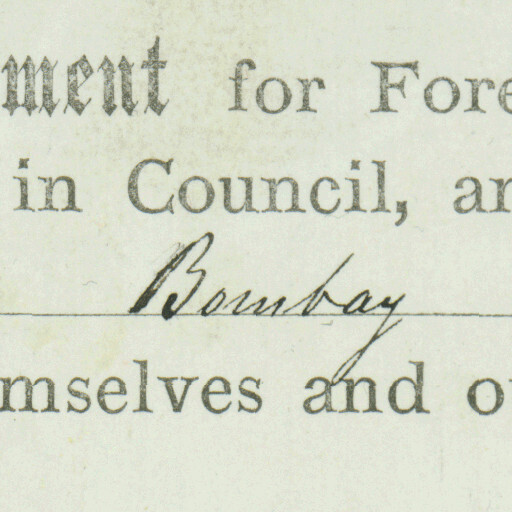 ment for Fore
in Council, an
Bombay
mselves and o